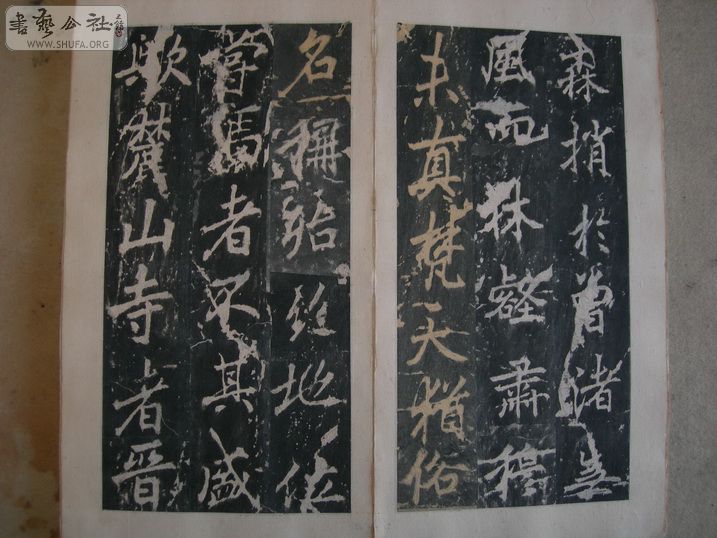 書藝公社
WWW.SHUFA.ORG
森梢於曾渚無
風而林壑肅穆
未真梵天猶俗
名稱殆絕地位
嘗高者不其盛
歟麓山寺者晉